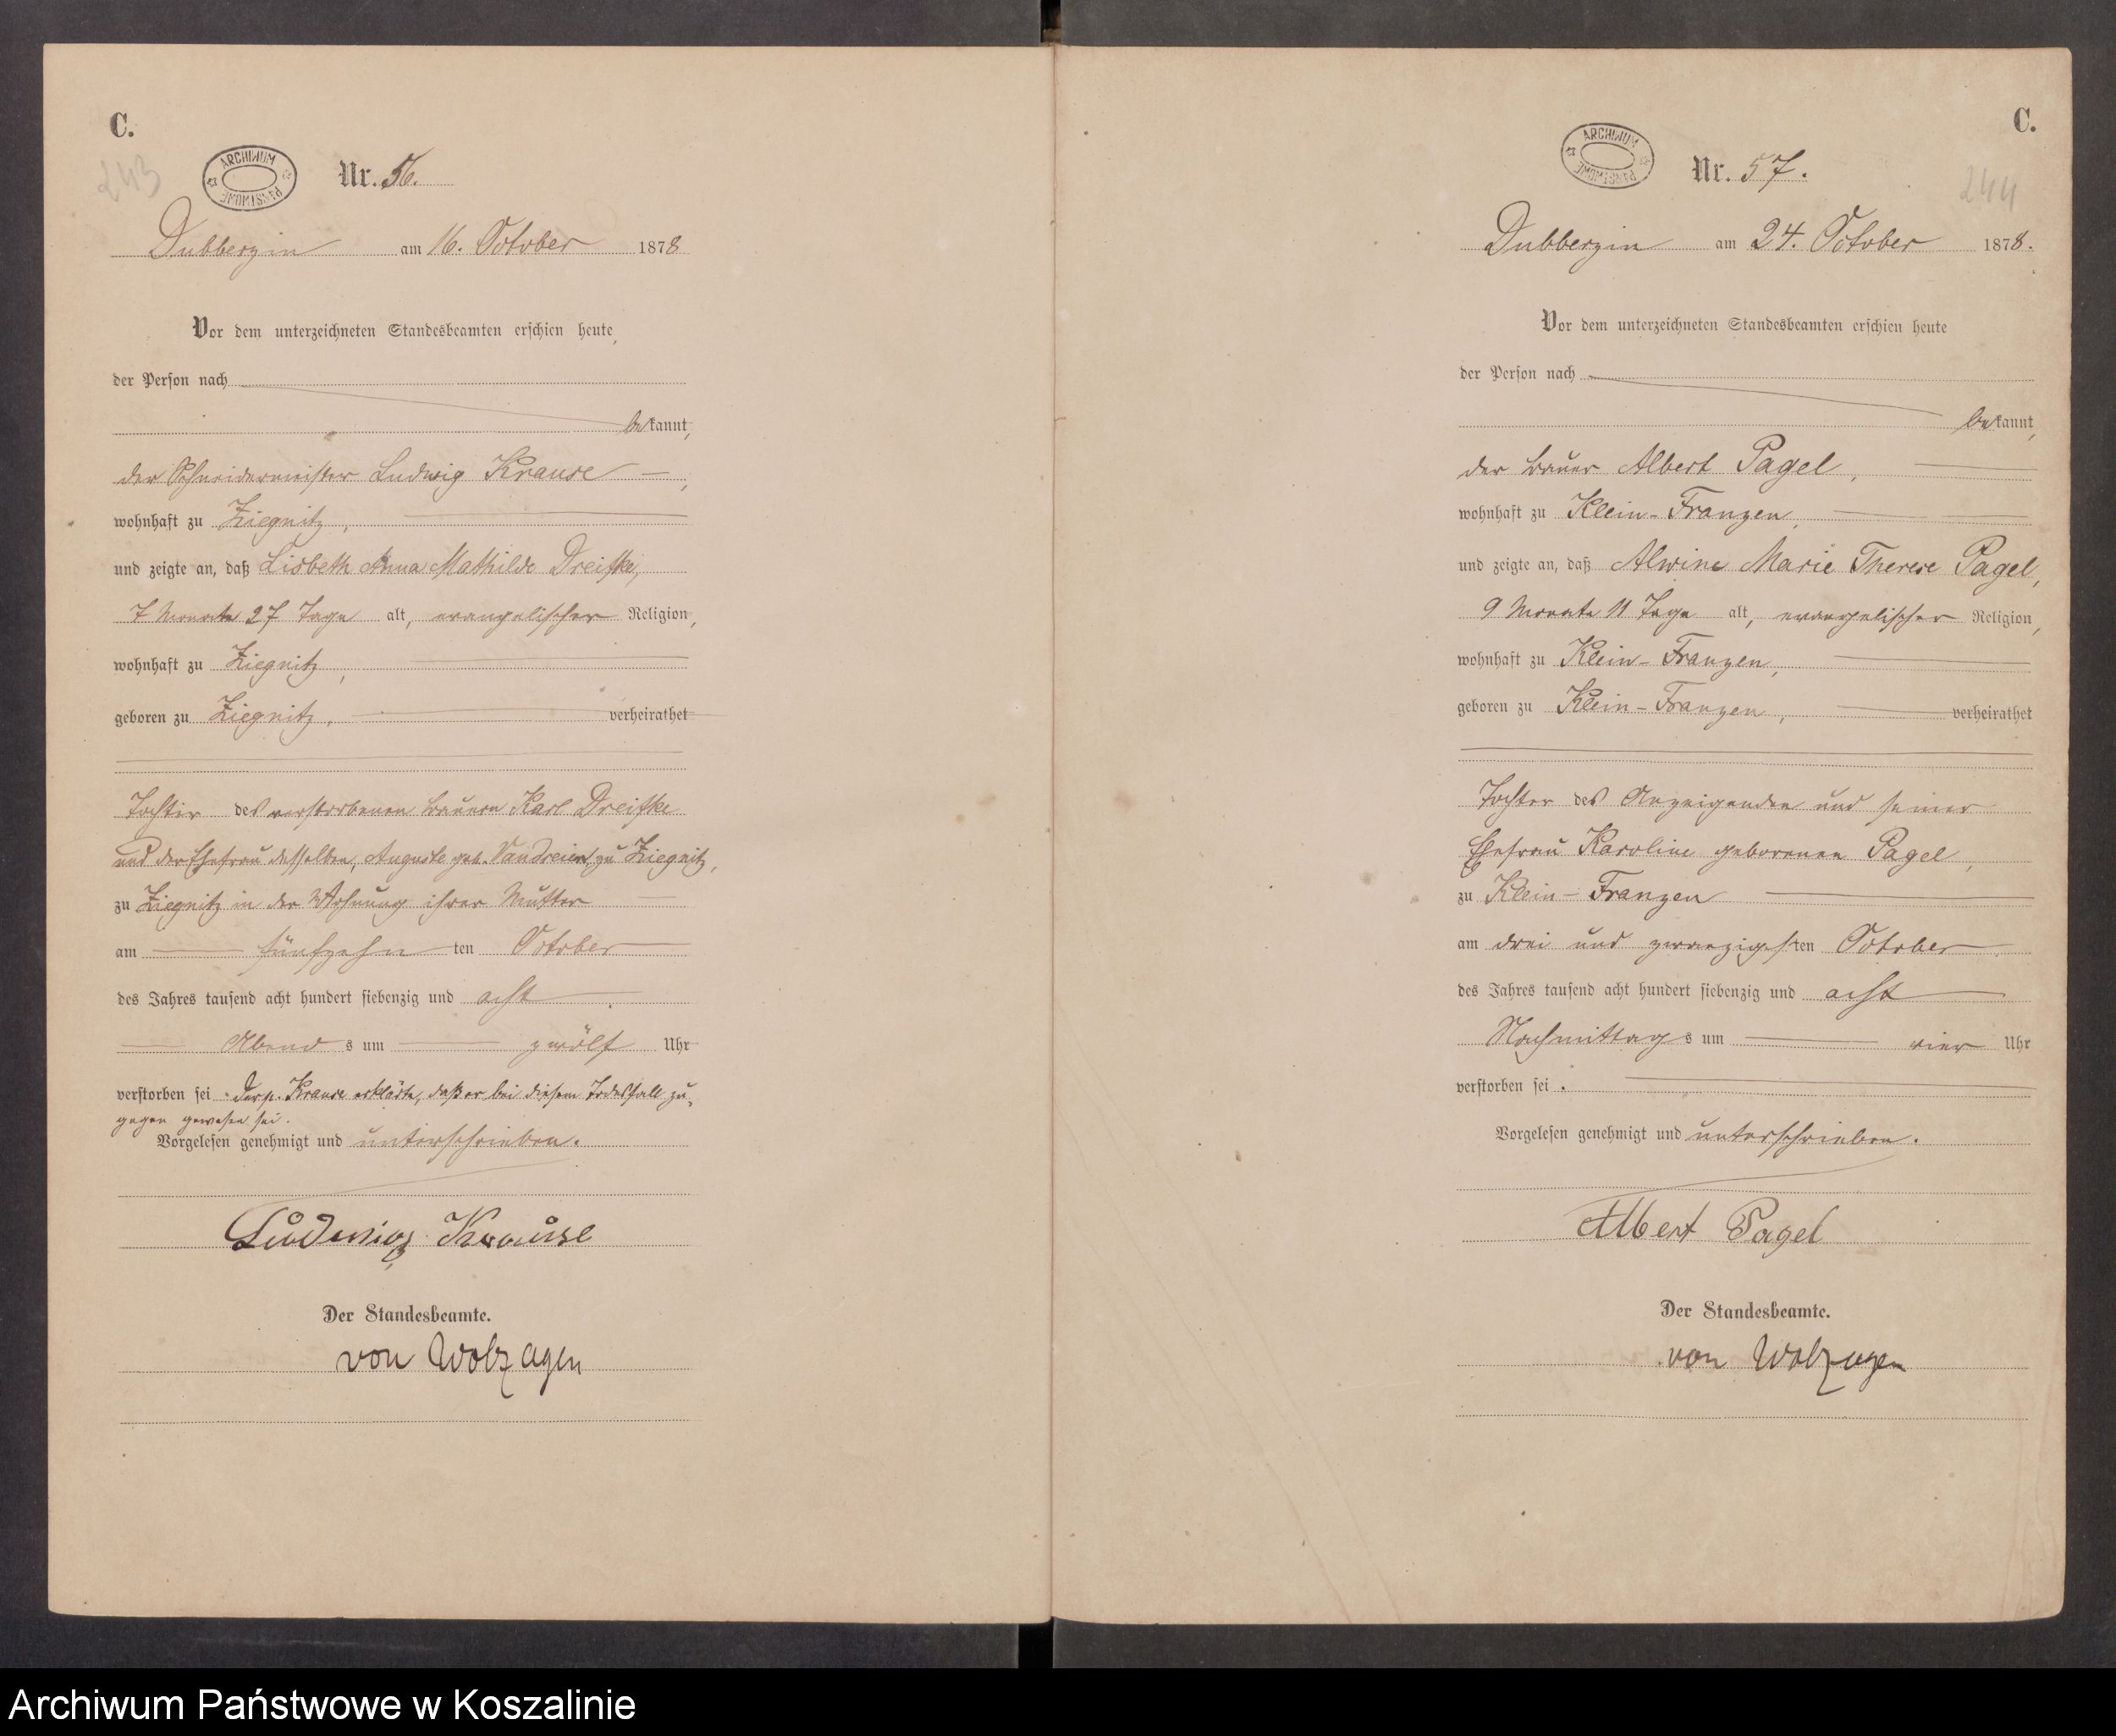 C.
243
ARCHIWUM PAŃSTWOWE
Nr. 56.
Dubberzin am 16. October 1878
Vor dem unterzeichneten Standesbeamten erschien heute,
der Person nach
bekannt,
der Schneidermeister Ludwig Krause,
wohnhaft zu Ziegnitz,
und zeigte an, daß Lisbeth Anna Mathilde Dreifke,
7 Monate 27 Tage alt, evangelischer Religion,
wohnhaft zu Ziegnitz,
geboren zu Ziegnitz, verheirathet
Tochter des verstorbenen Bauern Karl Dreifke
und der Ehefrau desselben, Auguste geb. Vandreier, zu Ziegnitz,
zu Ziegnitz in der Wohnung ihrer Mutter
am fünfzehn ten October
des Jahres tausend acht hundert siebenzig und acht
Abend s um zwölf Uhr
verstorben sei. Der p. Krause erklärte, daß er bei diesem Todesfall zu-
gegen gewesen sei.
Vorgelesen genehmigt und unterschrieben.
Ludwig Krause
Der Standesbeamte.
von Wolzogen
C.
244
ARCHIWUM PAŃSTWOWE
Nr. 57.
Dubberzin am 24. October 1878.
Vor dem unterzeichneten Standesbeamten erschien heute
der Person nach
bekannt,
der Bauer Albert Pagel,
wohnhaft zu Klein-Franzen,
und zeigte an, daß Alwine Marie Therese Pagel,
9 Monate 11 Tage alt, evangelischer Religion,
wohnhaft zu Klein-Franzen,
geboren zu Klein-Franzen, verheirathet
Tochter des Anzeigenden und seiner
Ehefrau Karoline geborenen Pagel,
zu Klein-Franzen
am drei und zwanzigsten October
des Jahres tausend acht hundert siebenzig und acht
Nachmittag s um vier Uhr
verstorben sei.
Vorgelesen genehmigt und unterschrieben.
Albert Pagel
Der Standesbeamte.
von Wolzogen
Archiwum Państwowe w Koszalinie